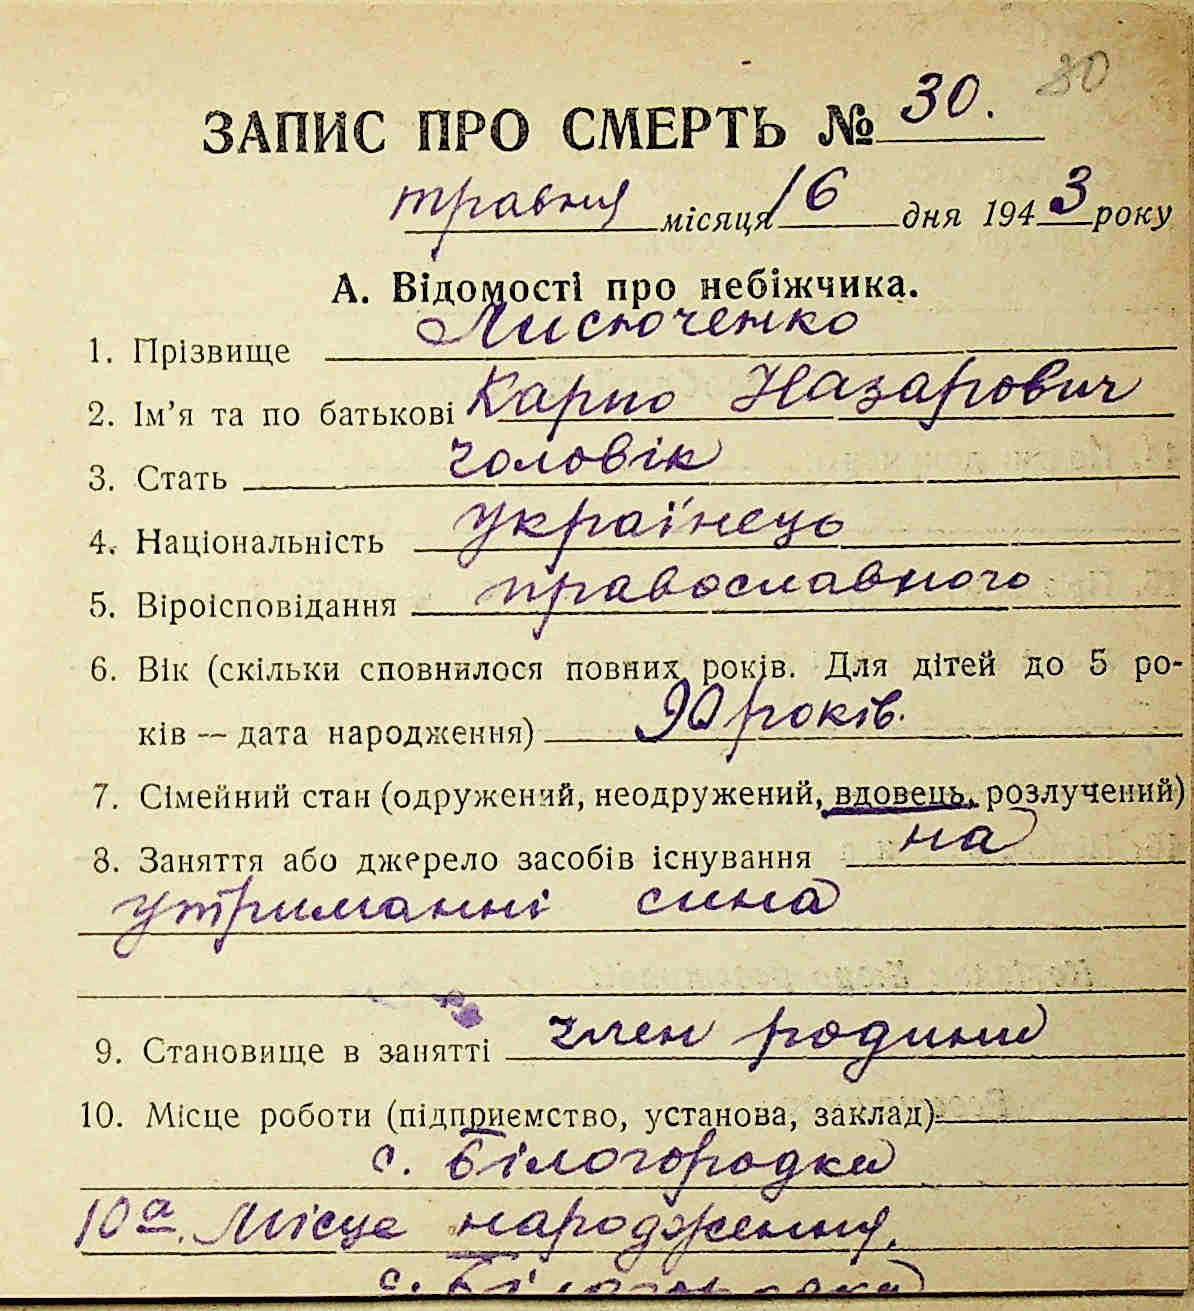 30
ЗАПИС ПРО СМЕРТЬ № 30.
травня місяця 16 дня 1943 року
А. Відомості про небіжчика.
1. Прізвище Лисюченко
2. Ім'я та по батькові Карпо Назарович
3. Стать чоловік
4. Національність українець
5. Віроісповідання православного
6. Вік (скільки сповнилося повних років. Для дітей до 5 ро-
ків — дата народження) 90 років.
7. Сімейний стан (одружений, неодружений, вдовець, розлучений)
8. Заняття або джерело засобів існування на
утриманні сина
9. Становище в занятті член родини
10. Місце роботи (підприємство, установа, заклад)
с. Білогородка
10а. Місце народження.
с. Білогородка